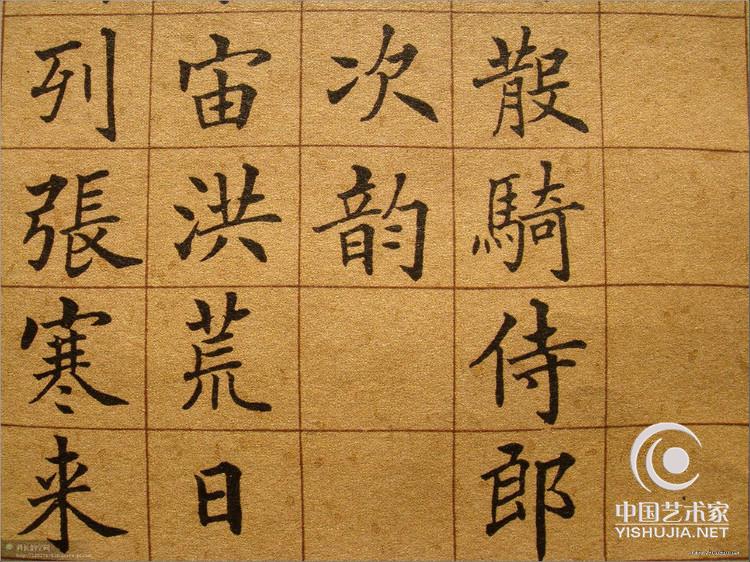 散騎侍郎
次韵
宙洪荒日
列張寒来
中国艺术家
YISHUJIA.NET